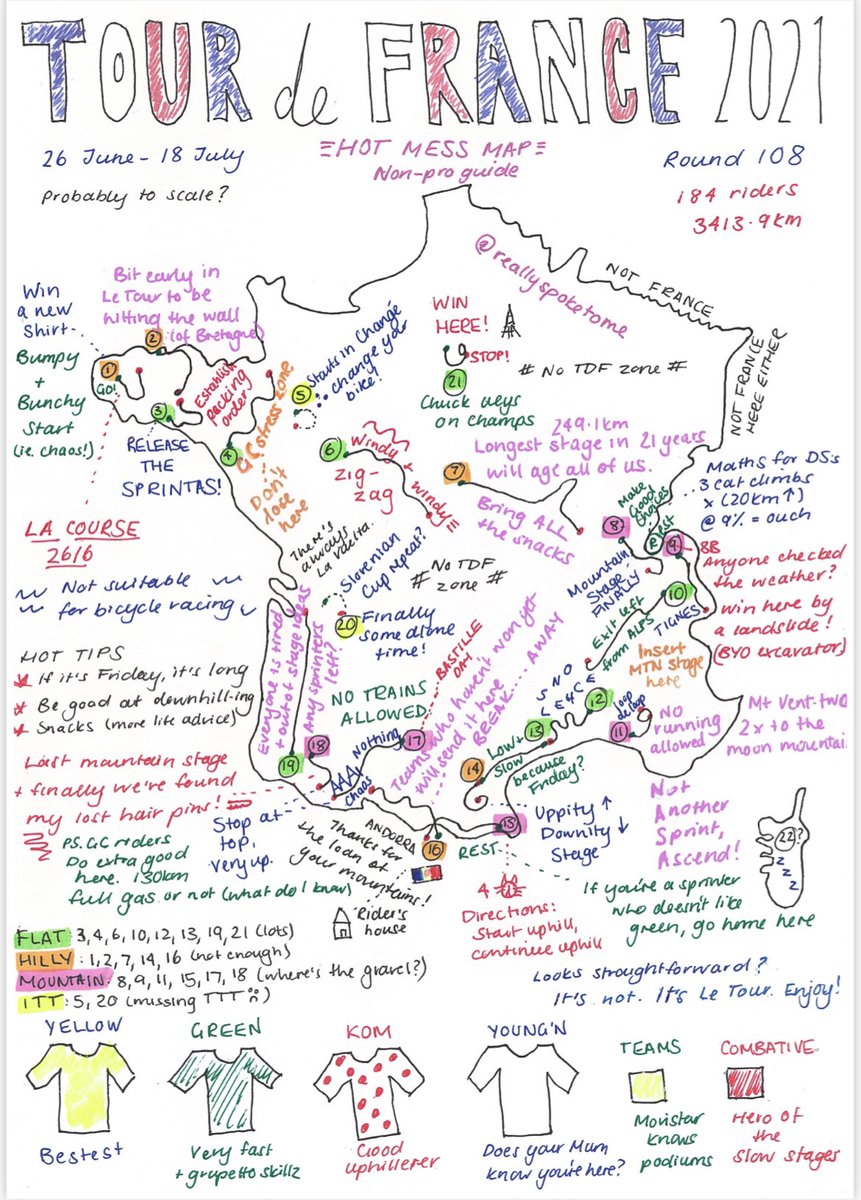 TOUR de FRANCE 2021
26 June - 18 July
Probably to scale?
HOT MESS MAP
Non-pro guide
Round 108
184 riders
3413.9km
@reallyspoketome
NOT FRANCE
NOT FRANCE
HERE EITHER
Win
a new
Shirt
Bumpy
+
Bunchy
Start
(ie. chaos!)
Bit early in
Le Tour to be
hitting the wall
(of Bretagne)
2
1
GO!
3
RELEASE
THE
SPRINTAS!
Establish
pecking
order
4
GC stress zone
Don't
lose
here
5
Starts in Changé
change your
bike!
WIN
HERE!
STOP!
21
Chuck ueys
on champs
# No TDF zone #
6
Windy + windy!!!
Zig-
zag
249.1km
Longest stage in 21 years
will age all of us.
7
Bring ALL
the snacks
8
Make
Good
choices
Rest
Mountain
Stage
FINALLY
Maths for DS's
3 cat climbs
x (20km↑)
@ 9% = ouch
9
8B
Anyone checked
the weather?
Win here by
a landslide!
(BYO excavator)
TIGNES
10
Exit left
from ALPS
Insert
MTN stage
here
LA COURSE
26/6
Not suitable
for bicycle racing
HOT TIPS
* If it's Friday, it's long
* Be good at downhill-ing
* Snacks (more life advice)
There's
always
La Vuelta.
Slovenian
Cup repeat?
# No TDF
zone #
20
Finally
some alone
time!
Everyone is tired
+ out of stage ideas
Any sprinters
left?
NO TRAINS
ALLOWED
BASTILLE
DAY
Teams who haven't won get
will send it here
BREAK..... AWAY
SNOLE4CE
12
loop
de loop
11
No
running
allowed
Mt Vent-two
2x to the
moon mountai
13
Low +
Slow
because
Friday?
14
17
Nothing
AAA
chaos
18
19
Last mountain stage
+ finally we've found
my lost hair pins!
PS. GC riders
Do extra good
here. 130km
full gas or not (what do I know)
Stop at
top,
very up.
ANDORRA
Thanks for
the loan of
your mountains!
16
REST
15
Uppity ↑
Downity ↓
Stage
Not
Another
Sprint,
Ascend!
22?
z
z
z
Rider's
house
4
Directions:
Start uphill,
continue uphill
If you're a sprinter
who doesn't like
green, go home here
FLAT: 3, 4, 6, 10, 12, 13, 19, 21 (lots)
HILLY: 1, 2, 7, 14, 16 (not enough)
MOUNTAIN: 8, 9, 11, 15, 17, 18 (where's the gravel?)
ITT: 5, 20 (missing TTT)
Looks straightforward?
It's not. It's Le Tour. Enjoy!
YELLOW
Bestest
GREEN
Very fast
+ grupetto skillz
KOM
Good
uphillerer
YOUNG'N
Does your Mum
know you're here?
TEAMS
Movistar
knows
podiums
COMBATIVE
Hero of
the
slow stages